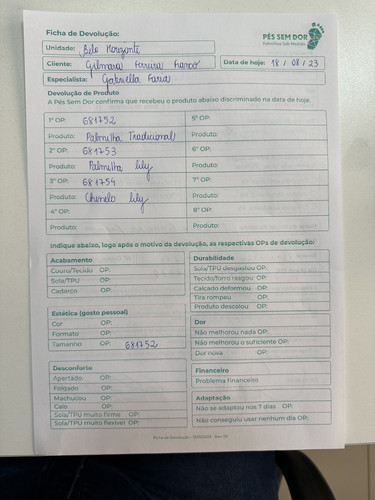 Ficha de Devolução:
PÉS SEM DOR
Palmilhas Sob Medida
Unidade: Belo Horizonte
Cliente: Gilmara Ferreira Franco Data de hoje: 18 / 08 / 23
Especialista: Gabriella Faria
Devolução de Produto
A Pés Sem Dor confirma que recebeu o produto abaixo discriminado na data de hoje.
1ª OP: 681752 5ª OP:
Produto: Palmilha Tradicional Produto:
2ª OP: 681753 6ª OP:
Produto: Palmilha lily Produto:
3ª OP: 681754 7ª OP:
Produto: Chinelo lily Produto:
4ª OP: 8ª OP:
Produto: Produto:
Indique abaixo, logo após o motivo da devolução, as respectivas OPs de devolução:
Acabamento
Couro/Tecido OP:
Sola/TPU OP:
Cadarço OP:
Durabilidade
Sola/TPU desgastou OP:
Tecido/forro rasgou OP:
Calçado deformou OP:
Tira rompeu OP:
Produto descolou OP:
Estética (gosto pessoal)
Cor OP:
Formato OP:
Tamanho OP: 681752
Dor
Não melhorou nada OP:
Não melhorou o suficiente OP:
Dor nova OP:
Desconforto
Apertado OP:
Folgado OP:
Machucou OP:
Calo OP:
Sola/TPU muito firme OP:
Sola/TPU muito flexível OP:
Financeiro
Problema financeiro
Adaptação
Não se adaptou nos 7 dias OP:
Não conseguiu usar nenhum dia OP:
Ficha de Devolução